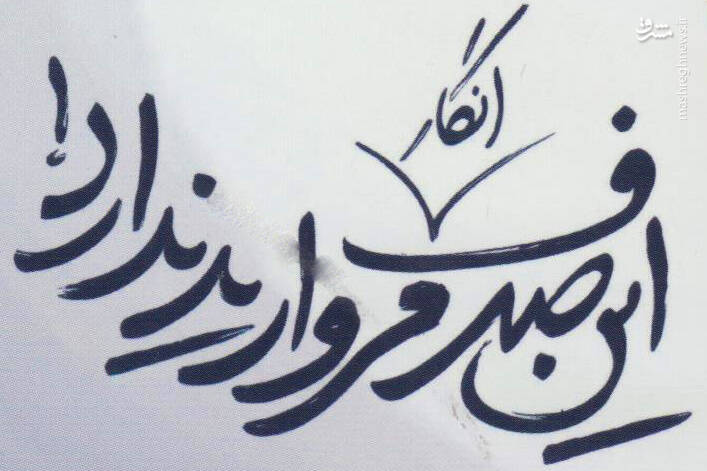 مشرق
mashreghnews.ir
انگار
این صدف مروارید ندارد!